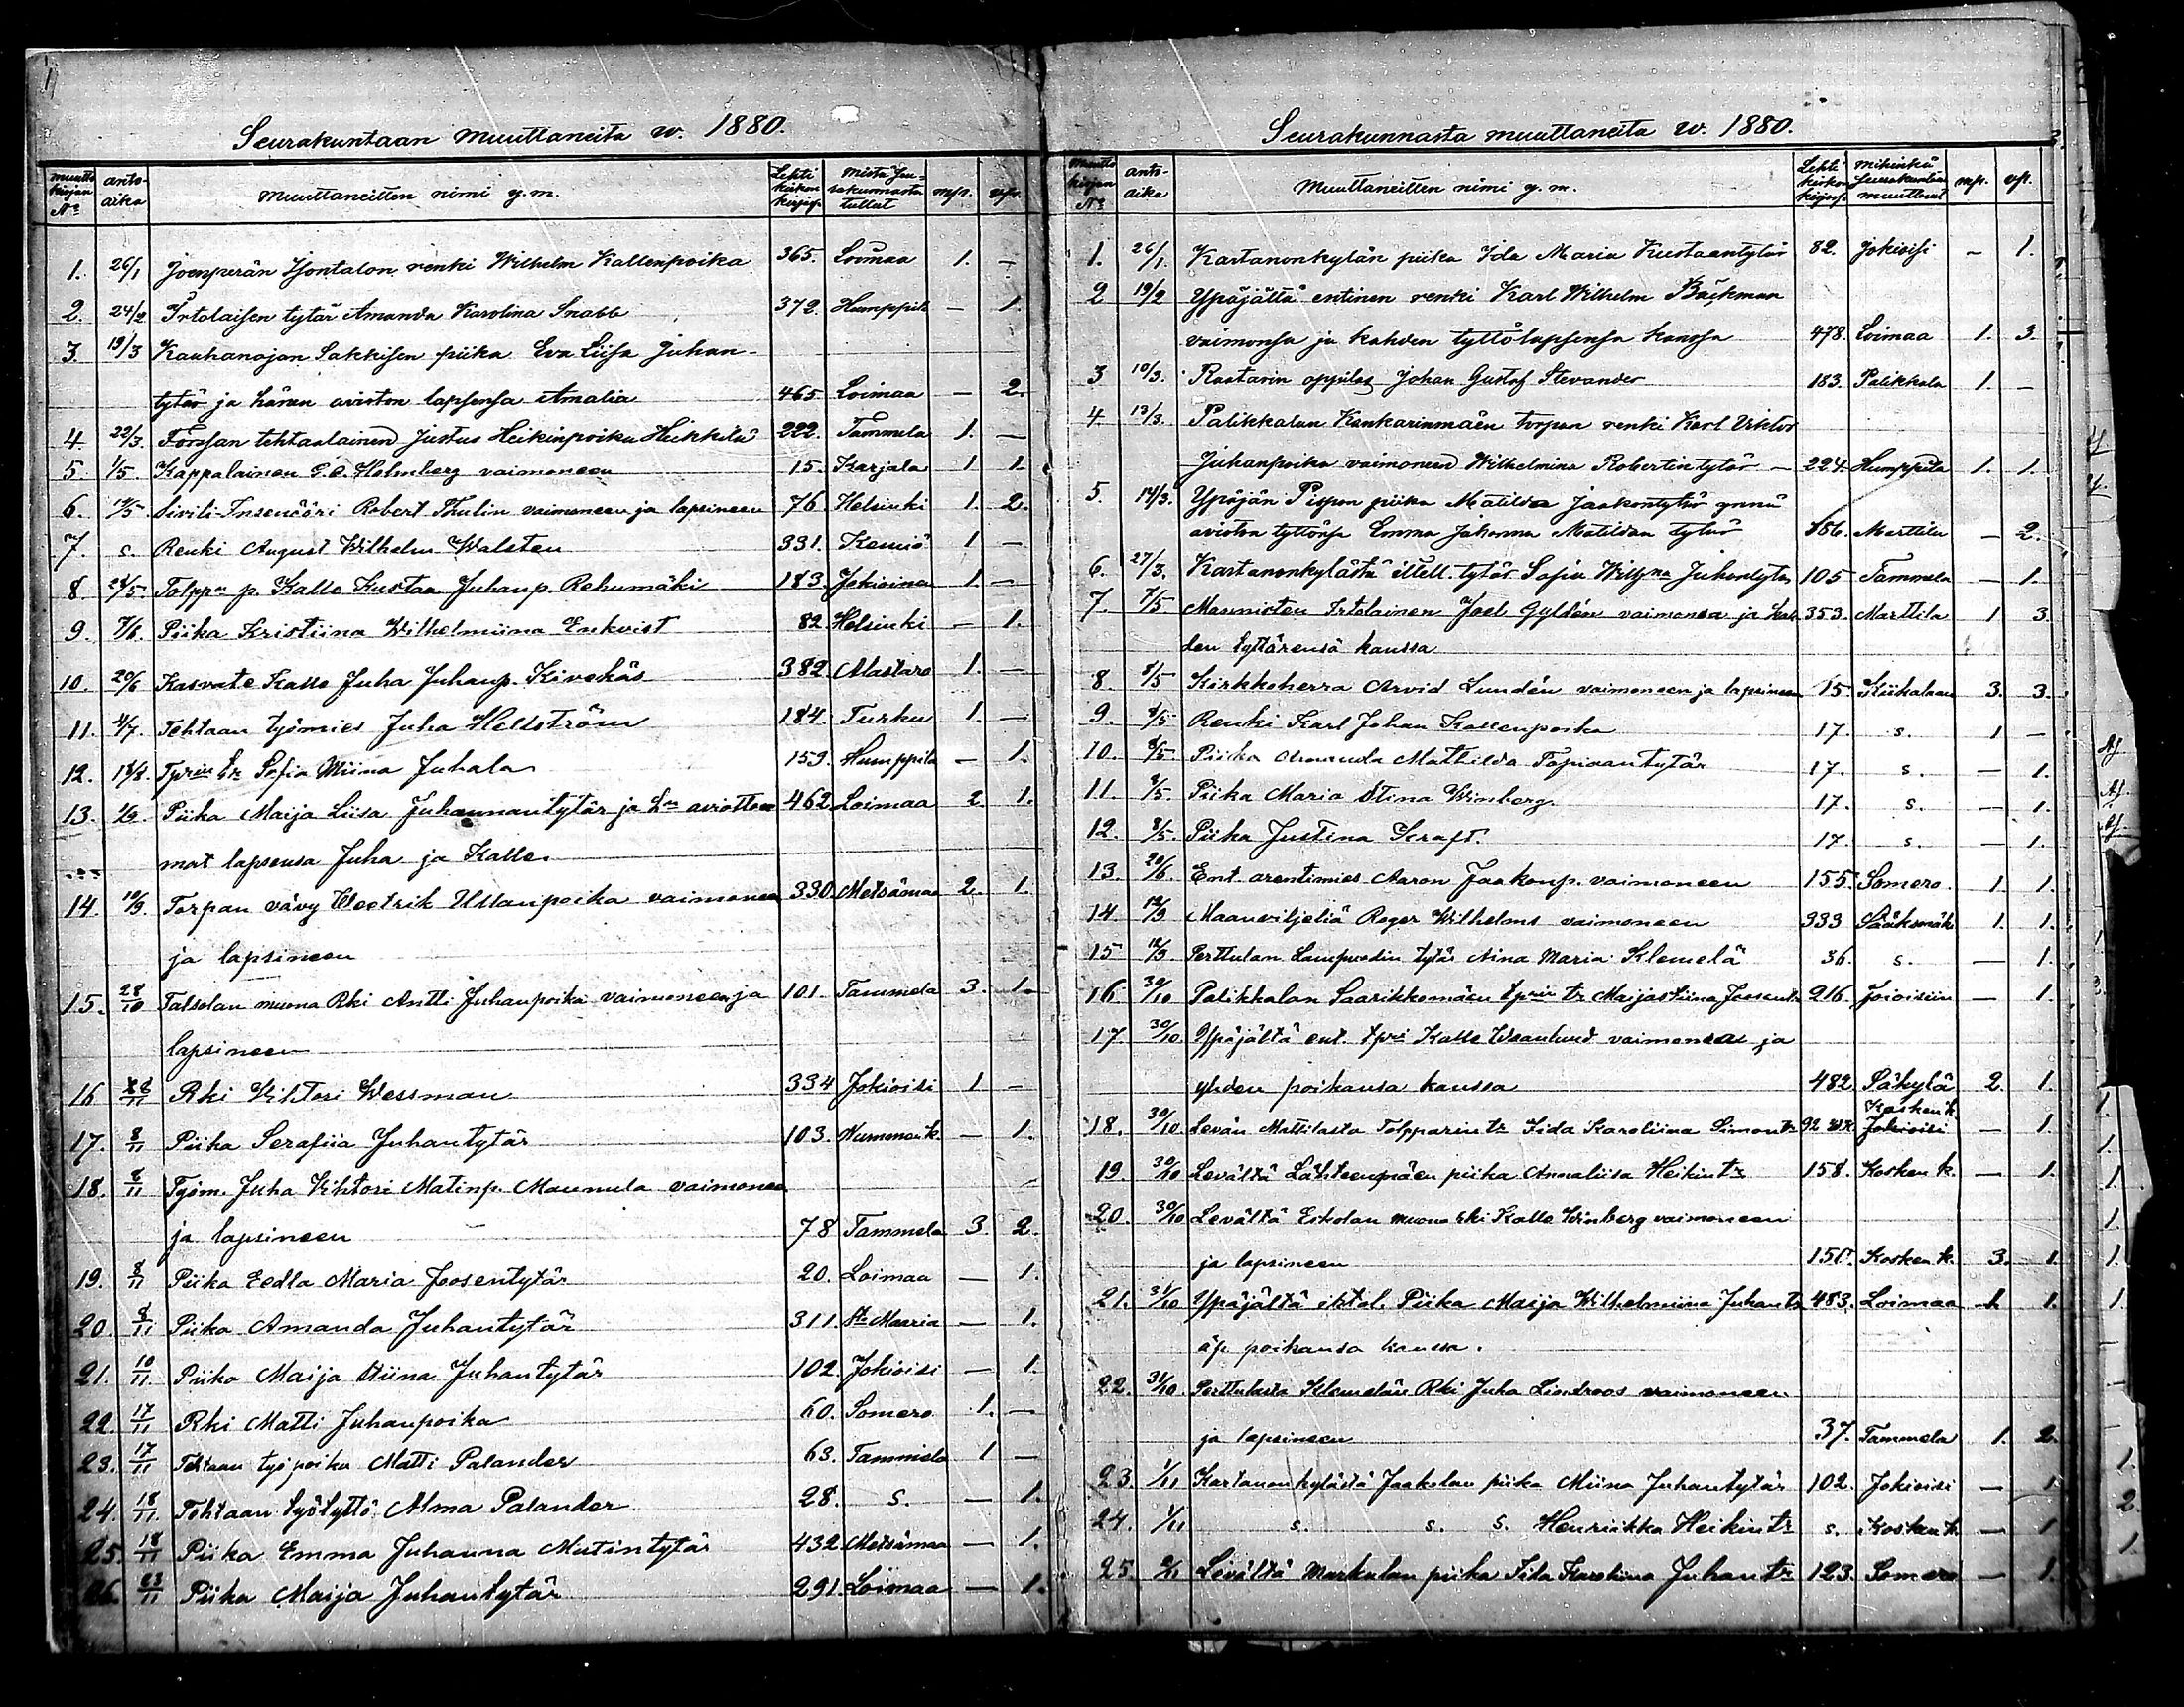 Seurakuntaan muuttaneita w. 1880.
muutto kirjan No
anto-aika
Muuttaneitten nimi y.m.
Lehti kirkon kirjass.
Mistä Seurakunnasta tullut
mp.
vp.
1. 26/1 Joenperän Hontalon renki Wilhelm Kallenpoika 365. Loimaa 1. —
2. 24/2 Irtolaisen tytär Amanda Karolina Snabb 372. Humppila — 1.
3. 19/3 Kauhanojan Sakkisen piika Eva Liisa Juhan-
tytär ja hänen aviston lapsensa Amalia 465 Loimaa — 2.
4. 22/3. Forssan tehtaalainen Justus Heikinpoika Heikkilä 222. Tammela 1. —
5 1/5. Kappalainen G. O. Holmberg vaimoneen 15. Karjala 1 1.
6. 12/5. Siviili-Insenööri Robert Thulin vaimoneen ja lapsineen 76 Helsinki 1. 2.
7. s. Renki August Wilhelm Walsten 331. Kemiö 1 —
8 28/5. Tolppa p. Kalle Kustaa Juhanp. Rehumäki 183. Jokioinen 1. —
9. 7/6. Piika Kristiina Wilhelmiina Enkvist 82. Helsinki — 1.
10. 20/6 Kasvate Kalle Juha Juhanp. Kivekäs 382. Alastaro 1. —
11. 4/7. Tehtaan työmies Juha Hellström 184. Turku 1. —
12. 18/8. Tprin tr Sofia Miina Juhala 159. Humppila — 1.
13. 1/9. Piika Maija Liisa Juhannantytär ja hn aviotto- 462 Loimaa 2. 1.
mat lapsensa Juha ja Kalle.
14. 19/9. Torpan vävy Fredrik Ullanpoika vaimoneen 330. Metsämaa 2. 1.
ja lapsineen
15. 28/10 Talsolan muona Rki Antti Juhanpoika vaimoneen ja 101. Tammela 3. 1.
lapsineen
16 8/11 Rki Vihtori Wessman 334 Jokioisi 1 —
17. 8/11 Piika Serafiia Juhantytär 103. Nummen k. — 1.
18. 8/11 Työm. Juha Vihtori Matinp. Maunula vaimoneen
ja lapsineen 78 Tammela 3. 2.
19. 8/11 Piika Eedla Maria Joosentytär 20. Loimaa — 1.
20. 8/11 Piika Amanda Juhantytär 311. Ste Maria — 1.
21. 10/11. Piika Maija Stiina Juhantytär 102. Jokioisi — 1.
22. 17/11 Rki Matti Juhanpoika 60. Somero 1. —
23. 17/11 Tehtaan työpoika Matti Palander 63. Tammela 1 —
24. 18/11. Tehtaan työtyttö Alma Palander 28. s. — 1.
25. 18/11 Piika Emma Juhanna Matintytär 432. Metsämaa — 1.
26. 23/11 Piika Maija Juhantytär 291. Loimaa — 1.
Seurakunnasta muuttaneita w. 1880.
Muutto kirjan No
anto-aika
Muuttaneitten nimi y.m.
Lehti kirkon kirjass.
mihinkä seurakuntaan muuttanut
mp.
vp.
1. 26/1. Kartanonkylän piika Ida Maria Kustaantytär 82. Jokioisi — 1.
2 19/2 Ypäjältä entinen renki Karl Wilhelm Bäckman
vaimonsa ja kahden tyttölapsensa kanssa 478. Loimaa 1. 3.
3 10/3. Räätärin oppilas Johan Gustaf Stevander 183. Palikkala 1. —
4 13/3. Palikkalan Kankarinmäen torpan renki Karl Viktor
Juhanpoika vaimoneen Wilhelmina Robertintytär — 224. Humppila 1. 1.
5. 14/3. Ypäjän Pispan piika Matilda Jaakontytär ynnä
avioton tyttönsä Emma Johanna Matildan tytär 456. Marttila — 2.
6. 27/3. Kartanonkylästä ittell. tytär Sofia Willhna Juhontytär 105 Tammela — 1.
7. 7/5 Maunisten Irtolainen Joel Gyldén vaimonsa ja kah- 353. Marttila 1 3.
den tyttärensä kanssa
8. 8/5 Kirkkoherra Arvid Lundén vaimoneen ja lapsineen 15. Kiikalaan 3. 3.
9. 8/5 Renki Karl Johan Kallenpoika 17. s. 1 —
10. 8/5 Piika Amanda Mathilda Tapiaantytär 17. s. — 1.
11. 8/5. Piika Maria Stina Winberg. 17. s. — 1.
12. 8/5. Piika Justina Kraft. 17. s. — 1.
13. 20/6. Ent. arentimies Aaron Jaakonp. vaimoneen 155. Somero 1. 1.
14 12/9 Maanviljeliä Roger Wilhelms vaimoneen 333 Sääksmäki 1. 1.
15 12/9 Perttulan Lampuodin tytär Aina Maria Klemelä 36. s. — 1.
16 30/10 Palikkalan Saarikkomäen tprin tr Maijastiina Joosentr 216. Joioisiin — 1.
17. 30/10. Ypäjältä ent. tpri Kalle Weanlund vaimonsa ja
yhden poikansa kanssa 482. Säkylä 2. 1.
18. 30/10 Levän Mattilasta Tolpparin tr Iida Karoliina Simontr 92 Kosken k. Jokioisi — 1.
19. 30/10 Levältä Lähteenpäen piika Annaliisa Heikintr 158. Kosken k. — 1.
20. 30/10 Levältä Eskolan muona Rki Kalle Winberg vaimoneen
ja lapsineen 150. Kosken k. 3. 1.
21. 31/10 Ypäjältä itstol. Piika Maija Wilhelmiina Juhantr 483. Loimaa 1. 1.
äp. poikansa kanssa.
22. 31/10. Perttulasta Klemelän Rki Juha Lindroos vaimoneen
ja lapsineen 37. Tammela 1. 2.
23. 1/11 Kartanonkylästä Jaakolan piika Miina Juhantytär 102. Jokioisi — 1
24. 1/11 s. s. s. Henriikka Heikintr s. Kosken k. — 1
25. 2/11 Levältä Markulan piika Iida Karoliina Juhantr 123. Somero — 1.